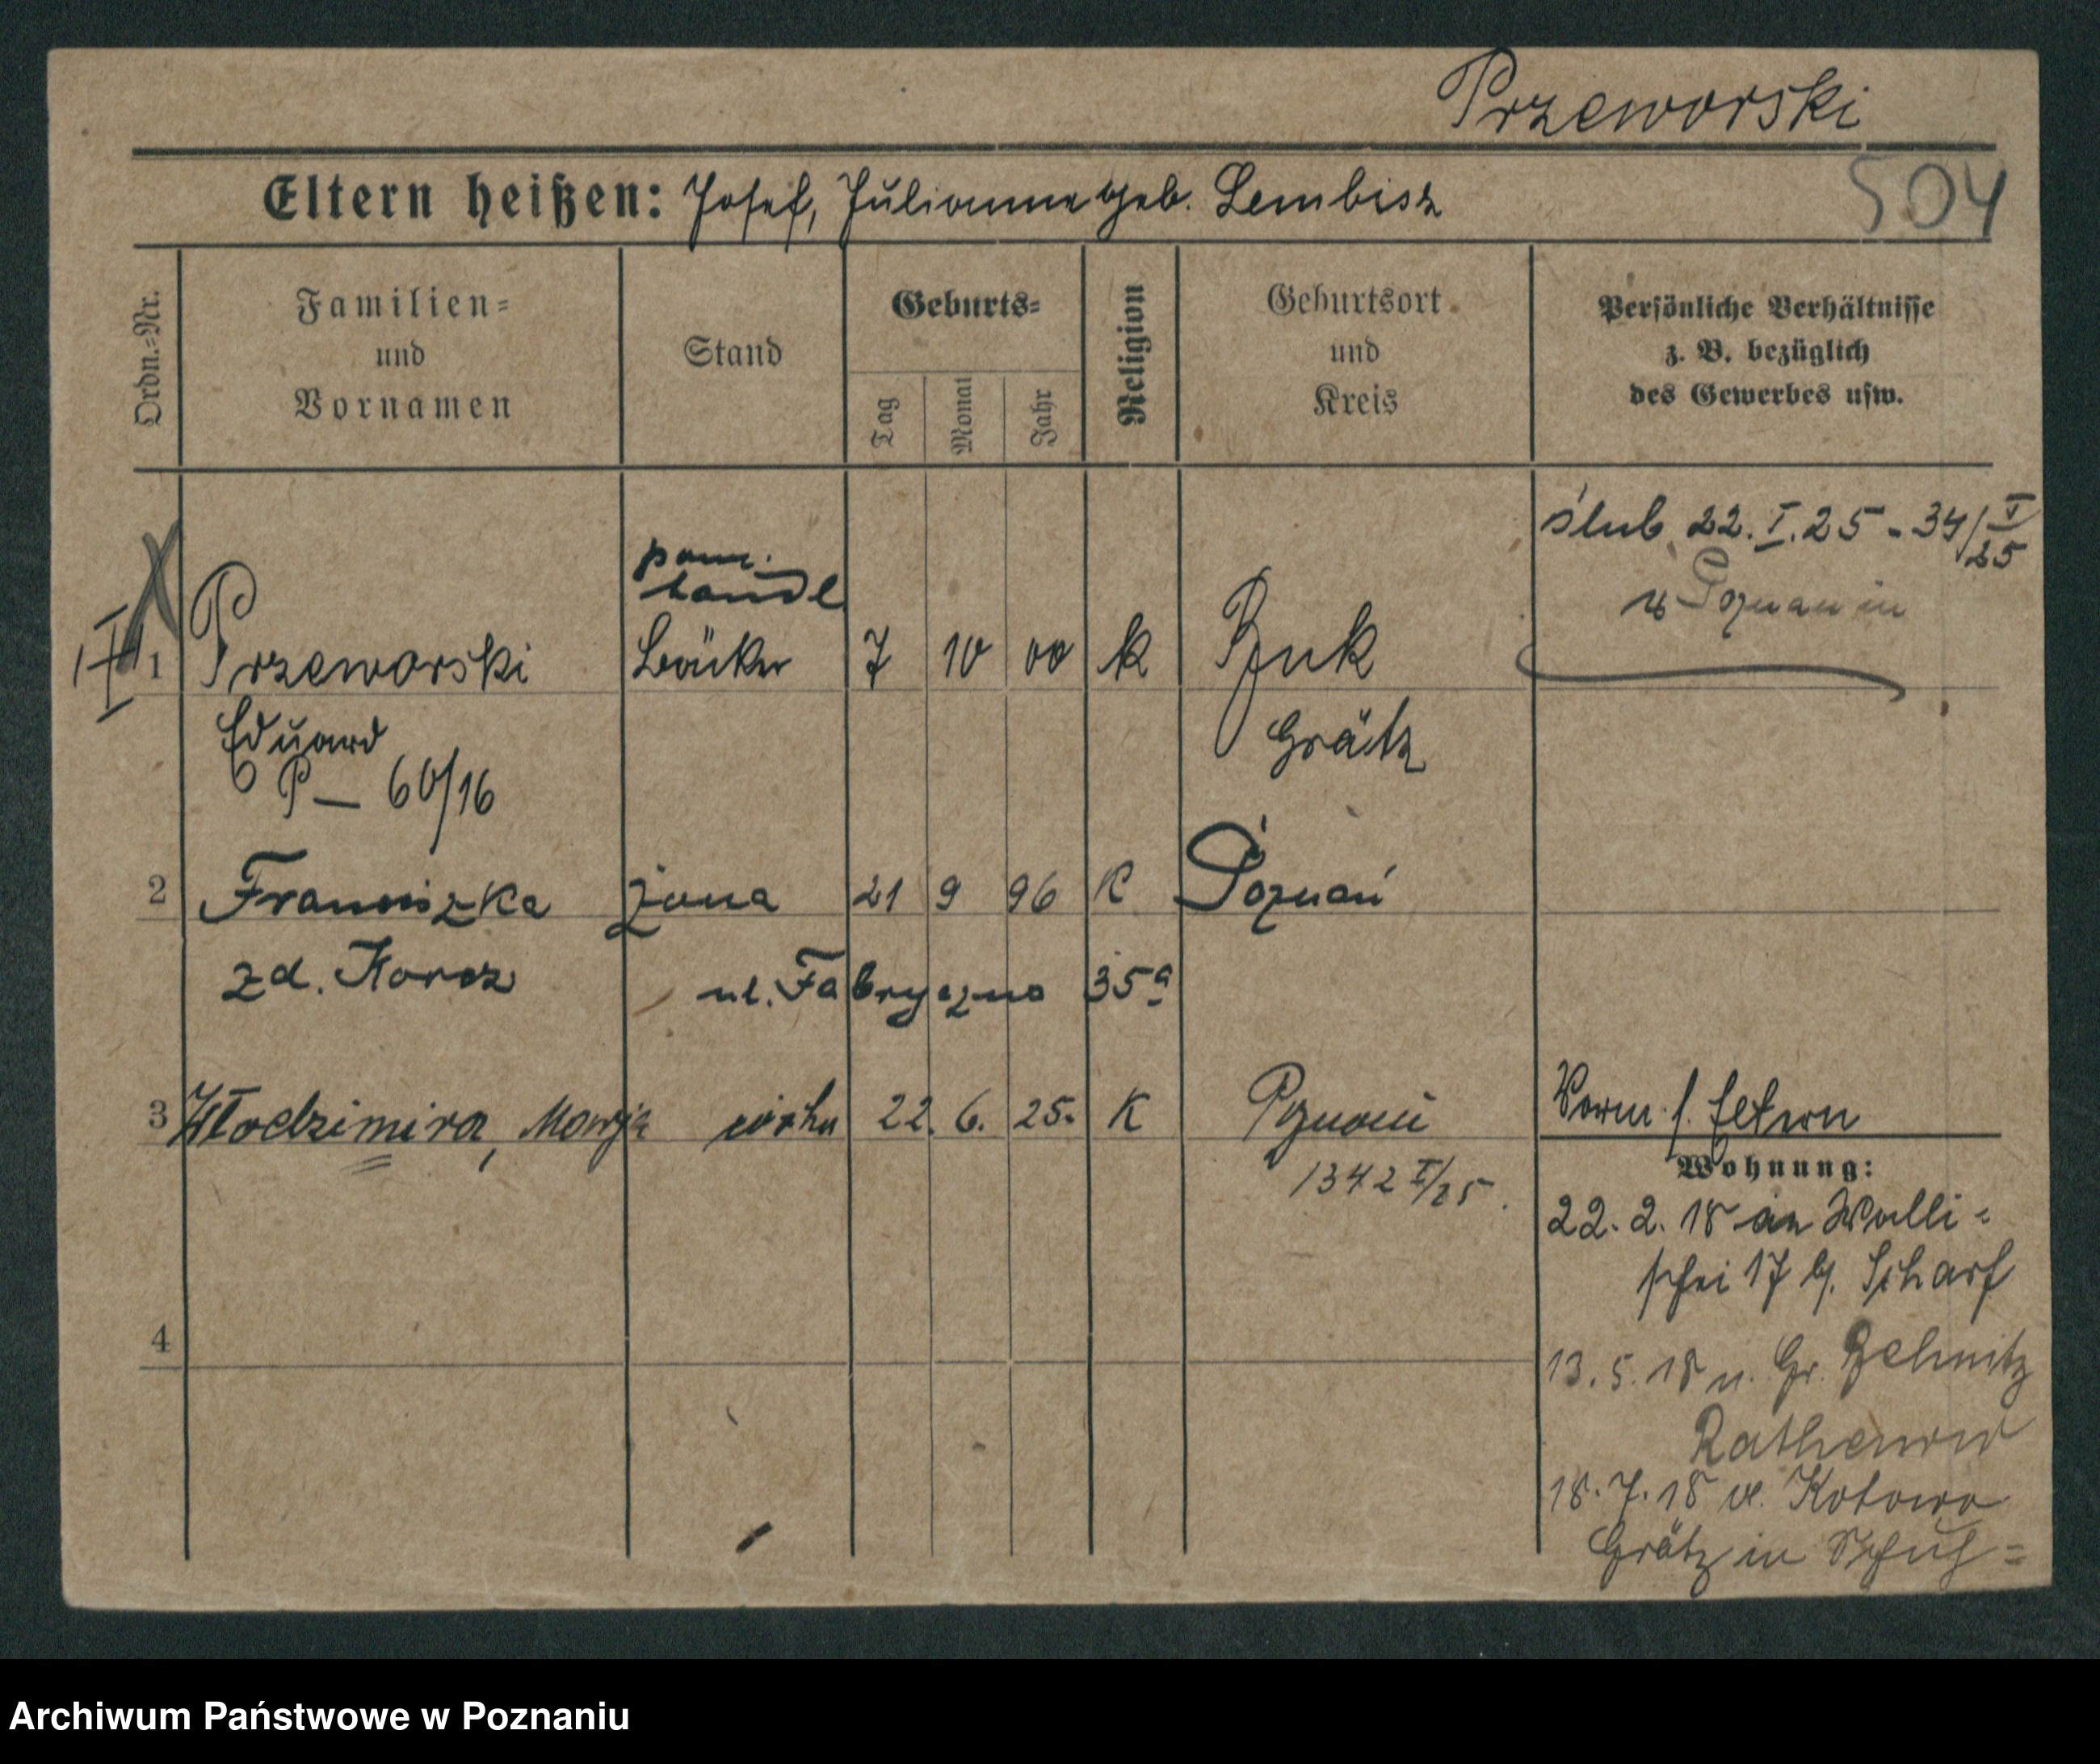 Przeworski
Eltern heißen: Josef, Julianna geb. Lembicz
504
Ordn.=Nr.
Familien=
und
Vornamen
Stand
Geburts=
Tag
Monat
Jahr
Religion
Geburtsort
und
Kreis
Persönliche Verhältnisse
z. B. bezüglich
des Gewerbes usw.
ślub 22.I.25 - 34/V/25
w Poznaniu
pom.
handl
1 Przeworski Bäcker 7 10 00 k Buk
Eduard Grätz
P — 60/16
2 Franciszka żona 21 9 96 K Poznań
zd. Korcz ul. Fabryczna 35a
3 Włodzimira, Marja córka 22. 6. 25. K Poznań
1342 I/25.
Vorm. s. Eltern
Wohnung:
22. 2. 18 an Walli=
schei 17 b/. Scharf
4
13. 5. 18 n. Gr. Behnitz
Rathenow
18. 7. 18 v. Kotowo
Grätz in